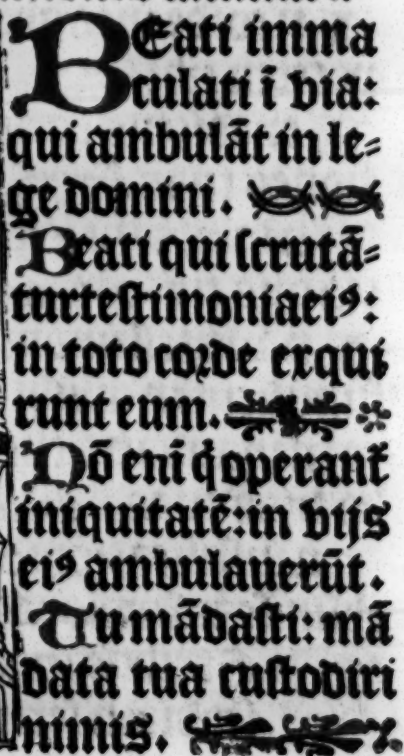 BEati imma
culati ī via:
qui ambulāt in le⸗
ge domini.
Beati qui ſcrutā⸗
tur teſtimonia eiꝰ:
in toto coꝛde exqui
runt eum.
Nō enī q̇ operant᷑
iniquitatē: in vijs
eiꝰ ambulauerūt.
Tu mādaſti: mā
data tua cuſtodiri
nimis.